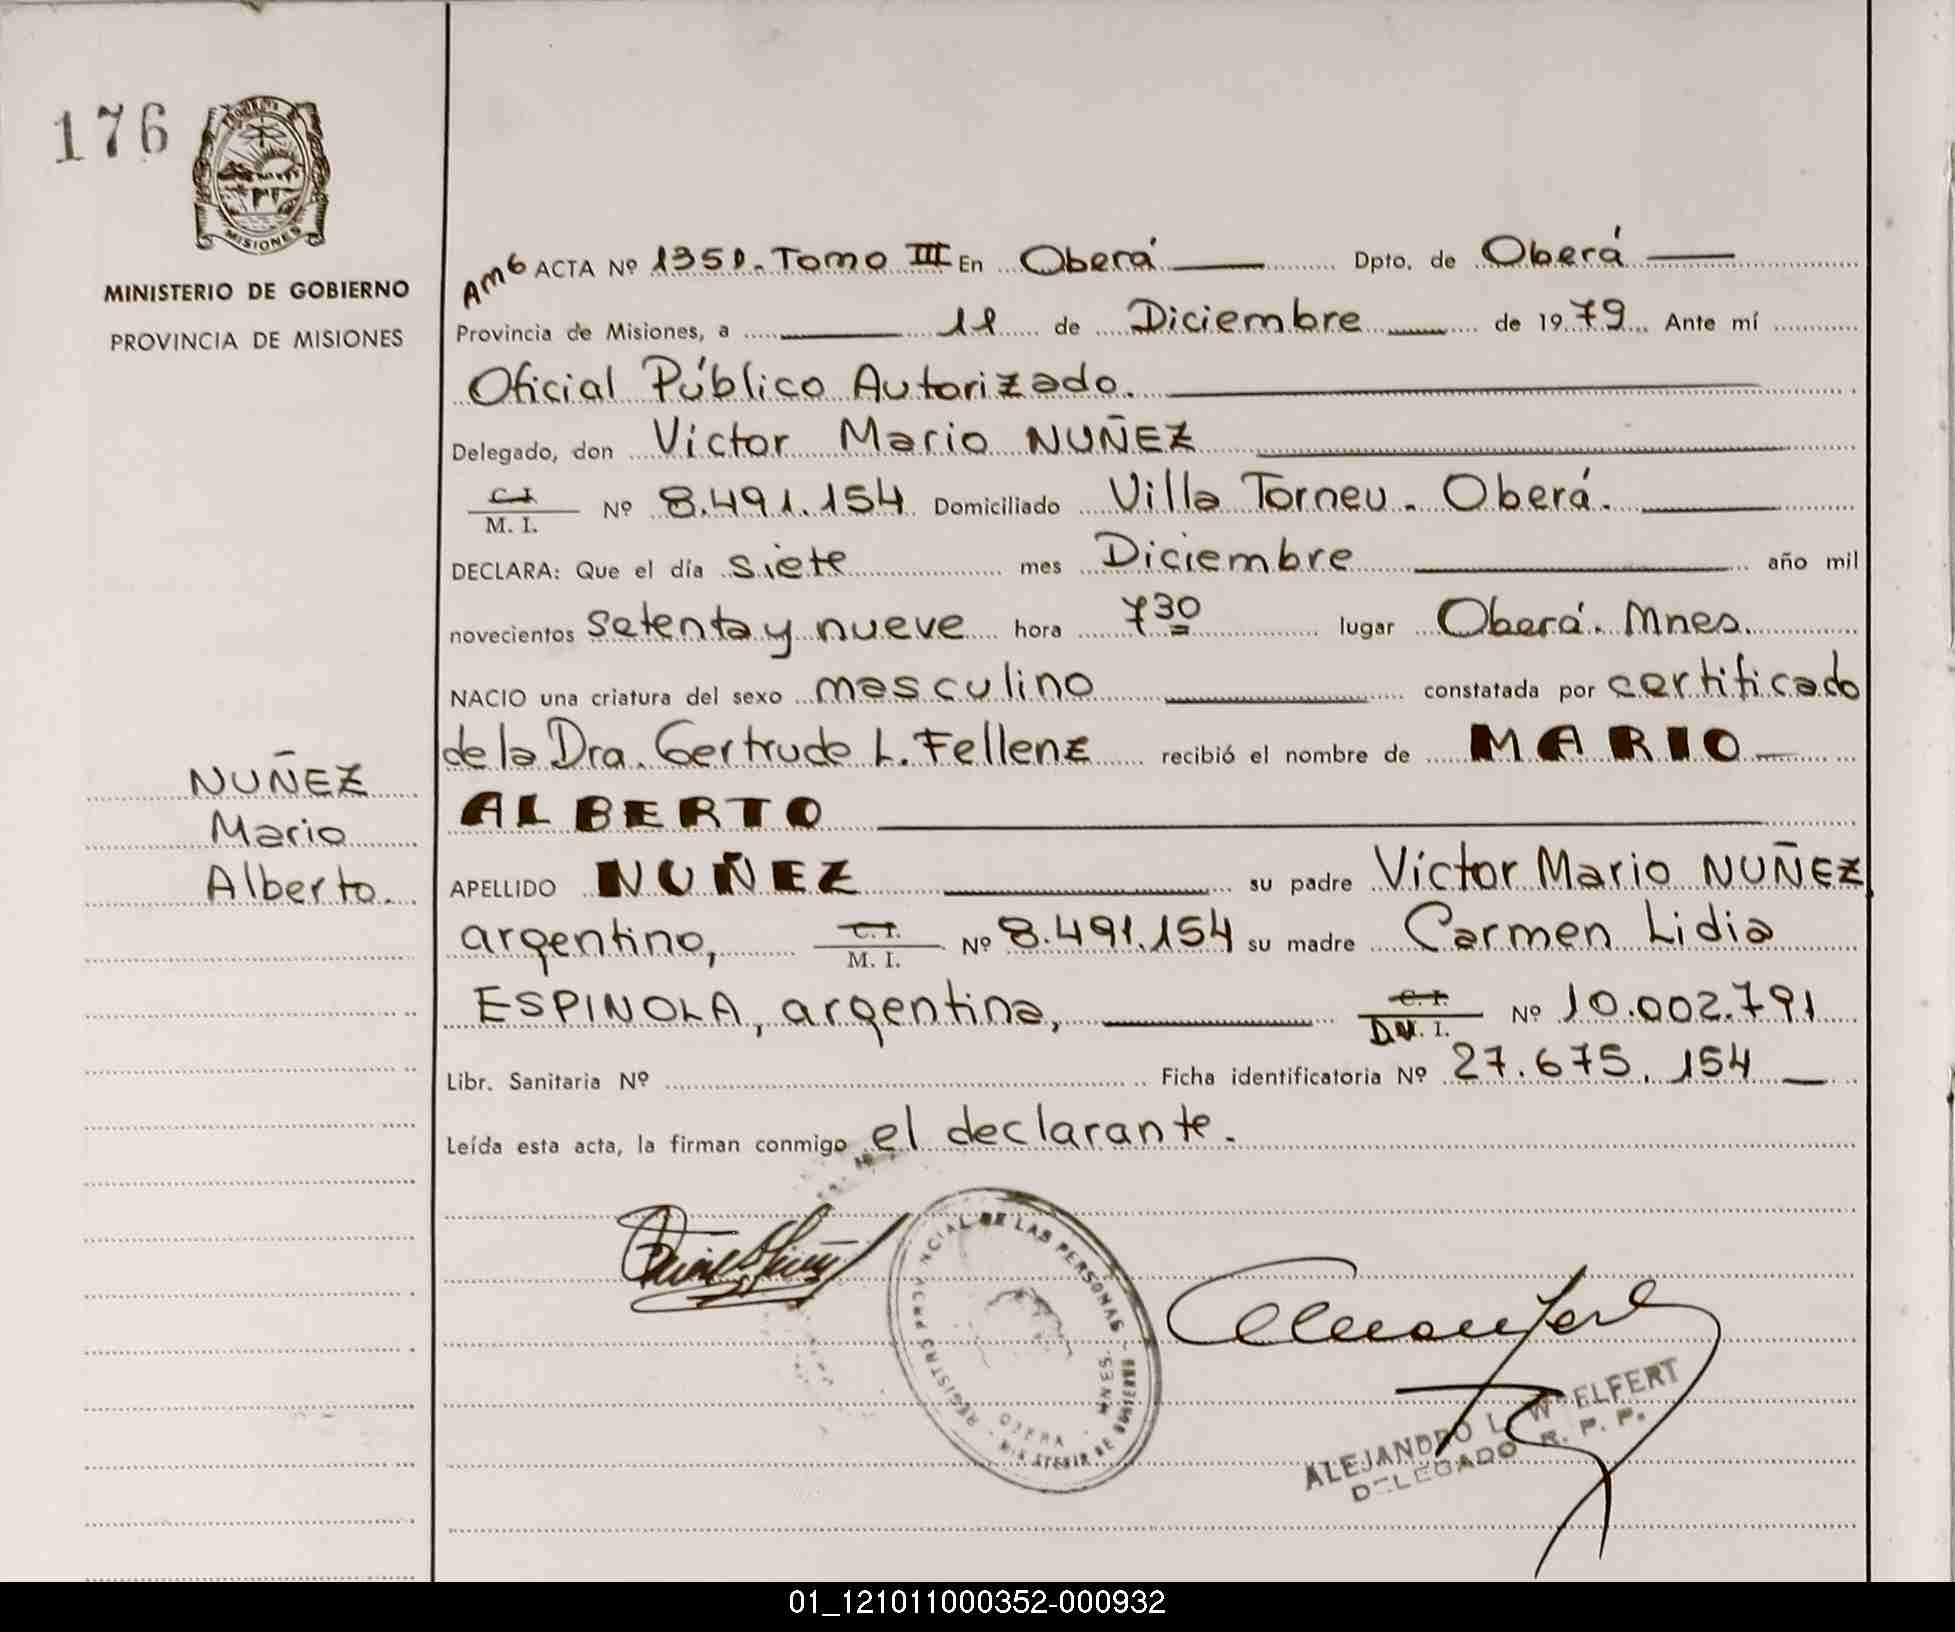 176
MISIONES
MINISTERIO DE GOBIERNO
PROVINCIA DE MISIONES
NUÑEZ
Mario
Alberto.
Am6 ACTA Nº 1351. Tomo III En Oberá Dpto. de Oberá
Provincia de Misiones, a 11 de Diciembre de 1979 Ante mí
Oficial Público Autorizado.
Delegado, don Víctor Mario NUÑEZ
C. I. / M. I. Nº 8.491.154 Domiciliado Villa Torneu. Oberá.
DECLARA: Que el día siete mes Diciembre año mil
novecientos setenta y nueve hora 7 30 lugar Oberá. Mnes.
NACIO una criatura del sexo masculino constatada por certificado
de la Dra. Gertrude L. Fellenz recibió el nombre de MARIO
ALBERTO
APELLIDO NUÑEZ su padre Víctor Mario NUÑEZ
argentino, C. I. / M. I. Nº 8.491.154 su madre Carmen Lidia
ESPINOLA, argentina, C. I. / D.N.I. Nº 10.002.791
Libr. Sanitaria Nº Ficha identificatoria Nº 27.675.154
Leída esta acta, la firman conmigo el declarante.
REGISTRO PROVINCIAL DE LAS PERSONAS - MINISTERIO DE GOBIERNO
OBERA MNES.
ALEJANDRO L. WELFERT
DELEGADO R. P. P.
01_121011000352-000932